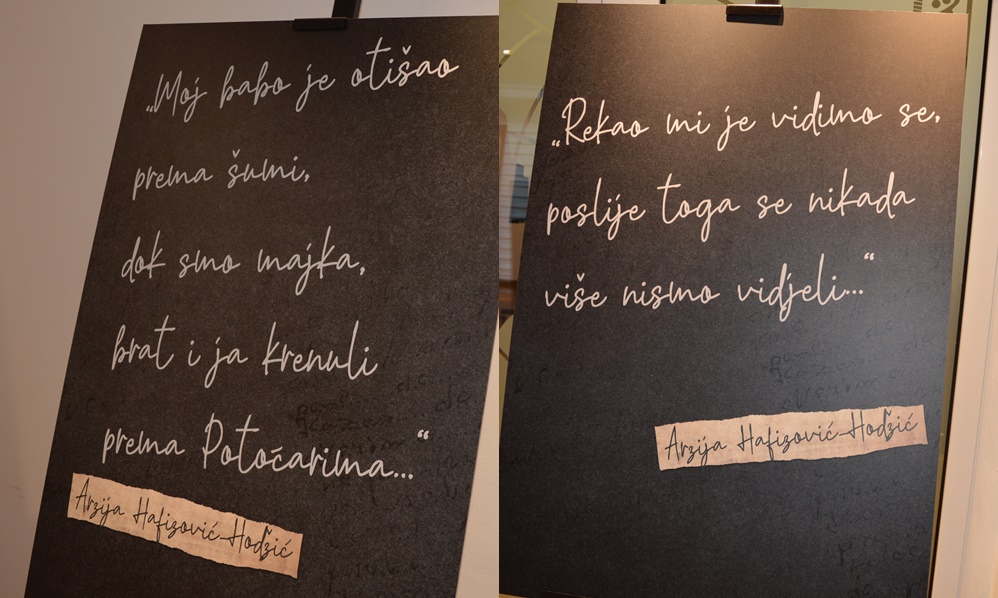 „Moj babo je otišao
prema šumi,
dok smo majka,
brat i ja krenuli
prema Potočarima...“
Arzija Hafizović-Hodžić
„Rekao mi je vidimo se,
poslije toga se nikada
više nismo vidjeli...“
Arzija Hafizović-Hodžić